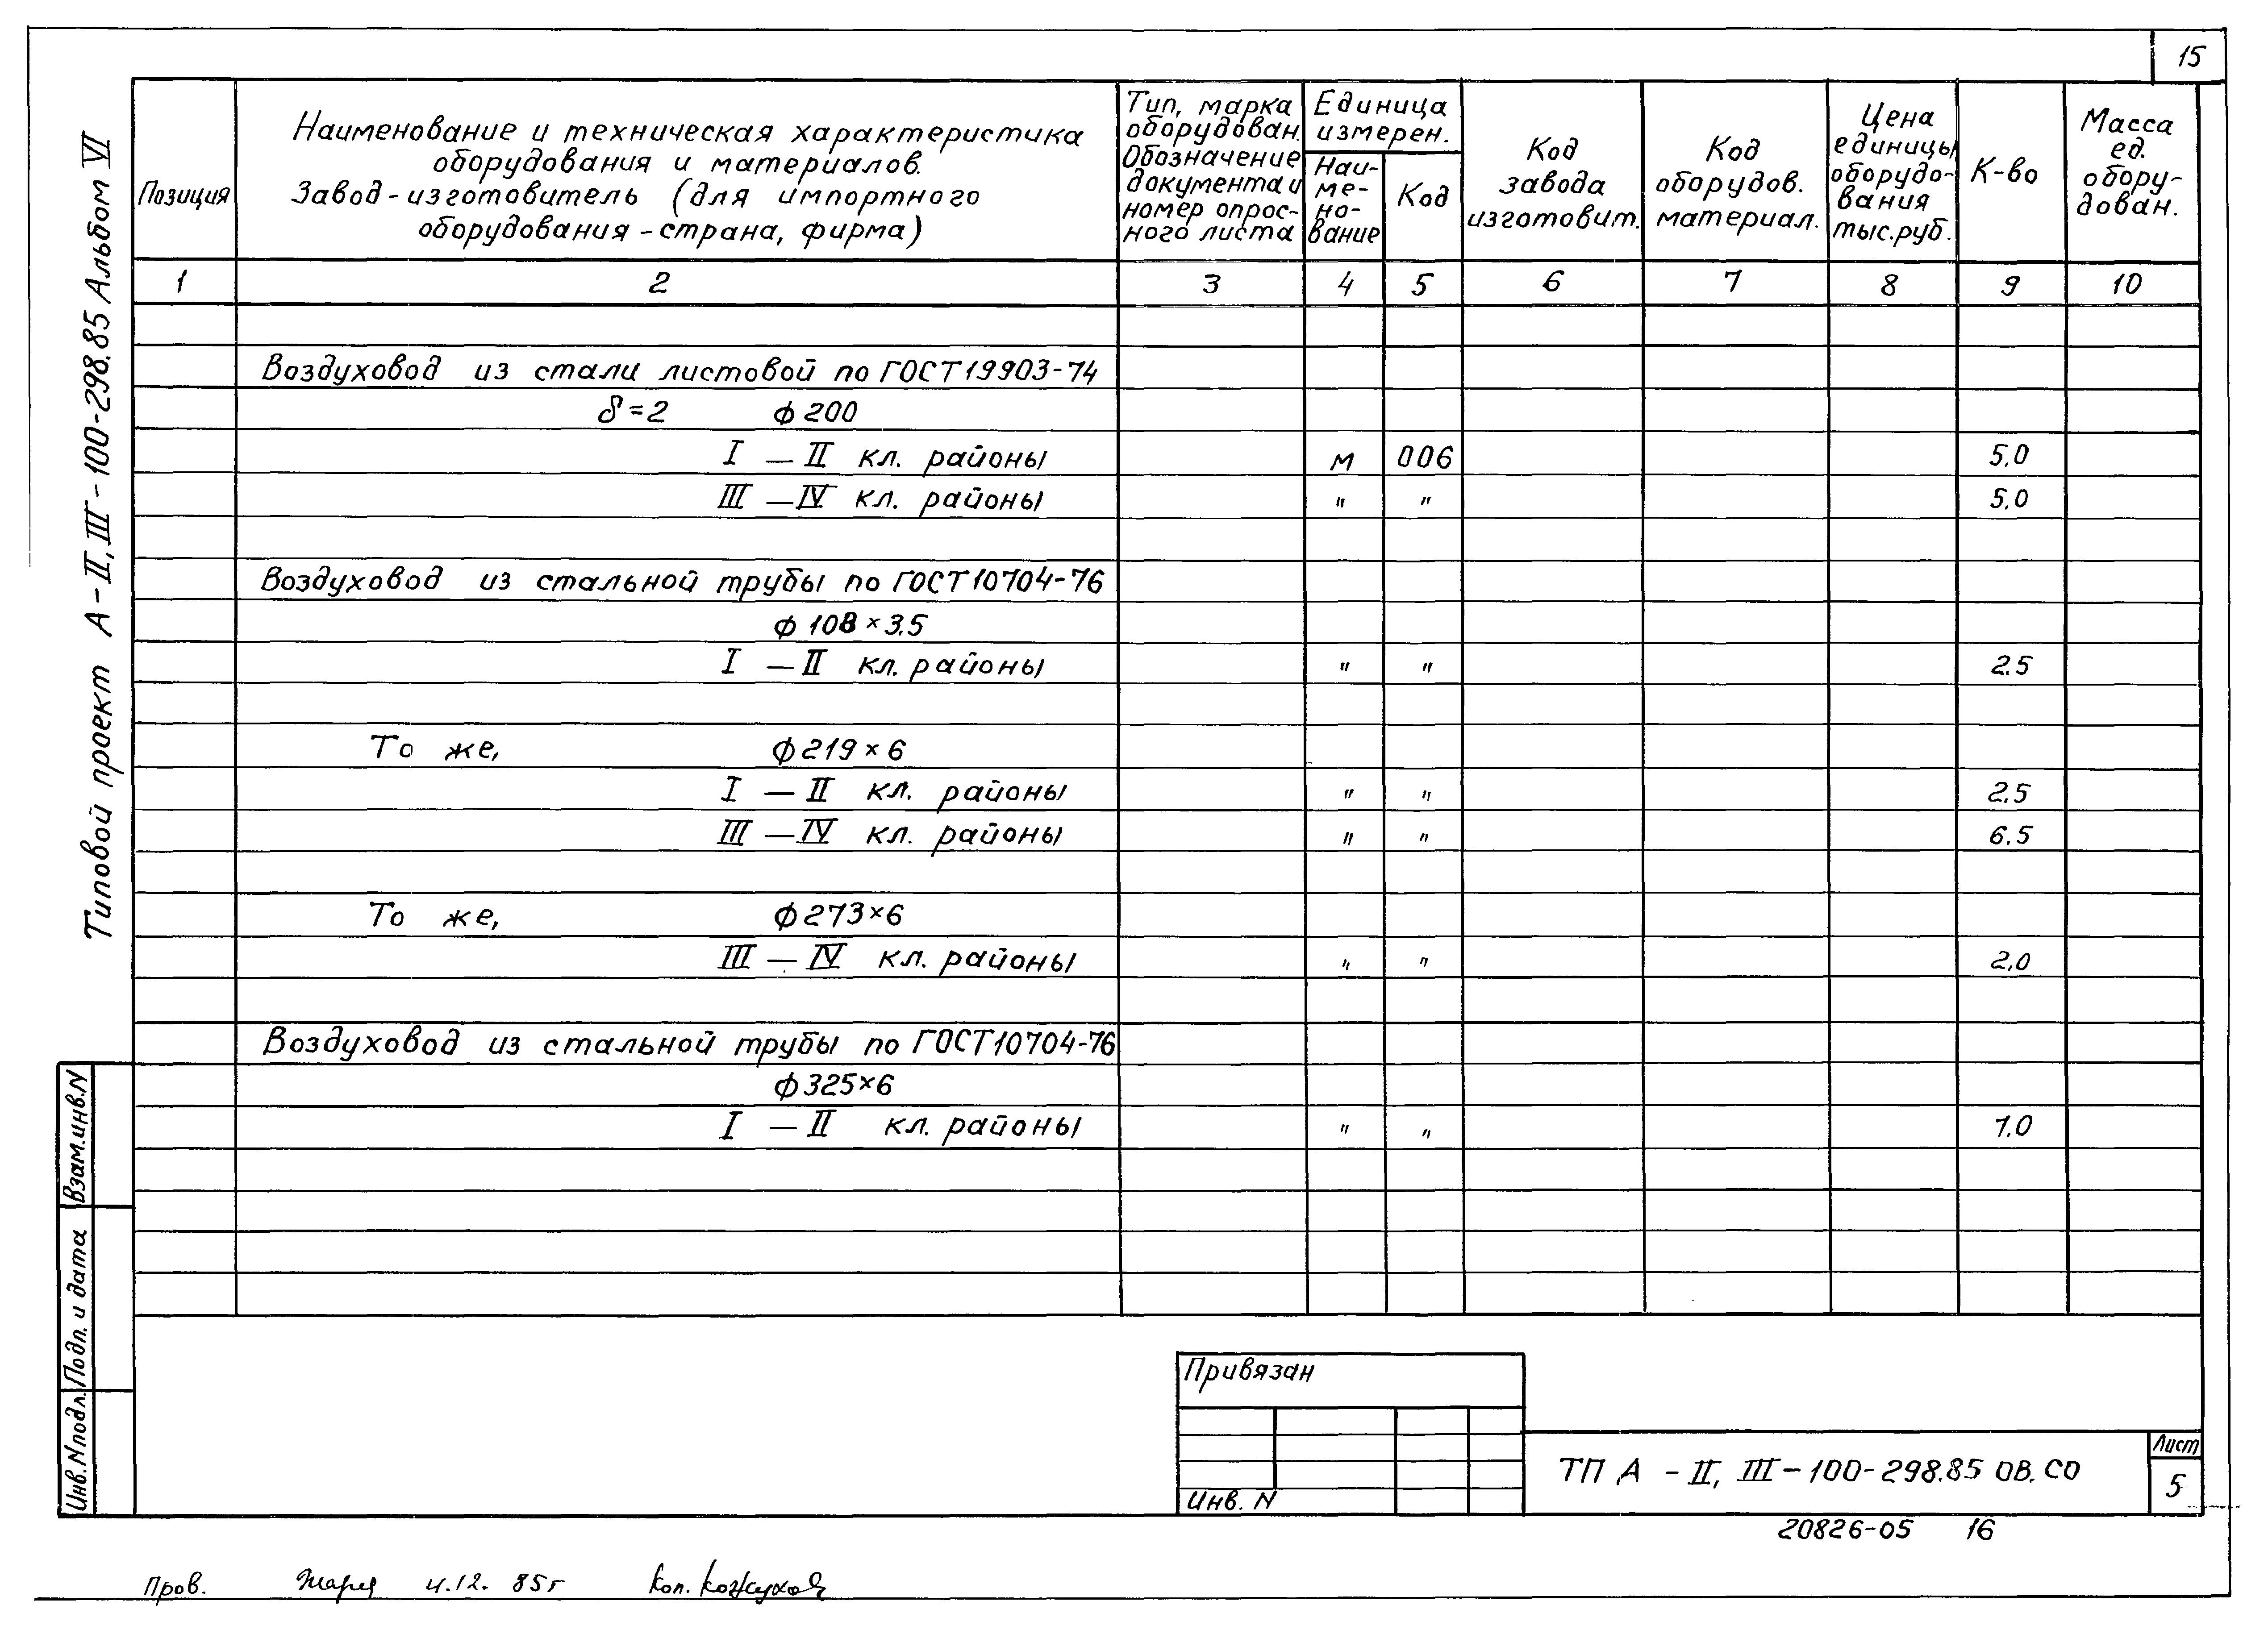 15
Типовой проект А-II, III-100-298.85 Альбом VI
Позиция
Наименование и техническая характеристика
оборудования и материалов.
Завод-изготовитель (для импортного
оборудования-страна, фирма)
Тип, марка
оборудован.
Обозначение
документа и
номер опрос-
ного листа
Единица
измерен.
Наи-
ме-
но-
вание
Код
Код
завода
изготовит.
Код
оборудов.
материал.
Цена
единицы
оборудо-
вания
тыс.руб.
К-во
Масса
ед.
обору-
дован.
1 2 3 4 5 6 7 8 9 10
Воздуховод из стали листовой по ГОСТ19903-74
δ=2 ф 200
I – II кл. районы м 006 5,0
III – IV кл. районы " " 5,0
Воздуховод из стальной трубы по ГОСТ10704-76
ф 108 × 3,5
I – II кл. районы " " 2,5
То же, ф 219 × 6
I – II кл. районы " " 2,5
III – IV кл. районы " " 6,5
То же, ф 273×6
III – IV кл. районы " " 2,0
Воздуховод из стальной трубы по ГОСТ10704-76
ф 325×6
I – II кл. районы " " 1,0
Взам.инв.N
Подп. и дата
Инв.Nподл.
Привязан
Инв. N
ТП А - II, III-100-298.85 ОВ.СО
Лист
5
20826-05 16
Пров. 4.12. 85г Коп.